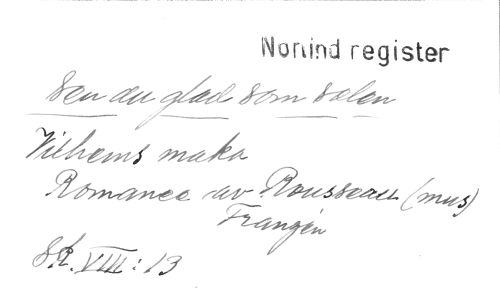 Norlind register
Sen du glad som solen
Vilhems maka
Romance av Rousseau (mus)
Frangén
SR. VIII:13